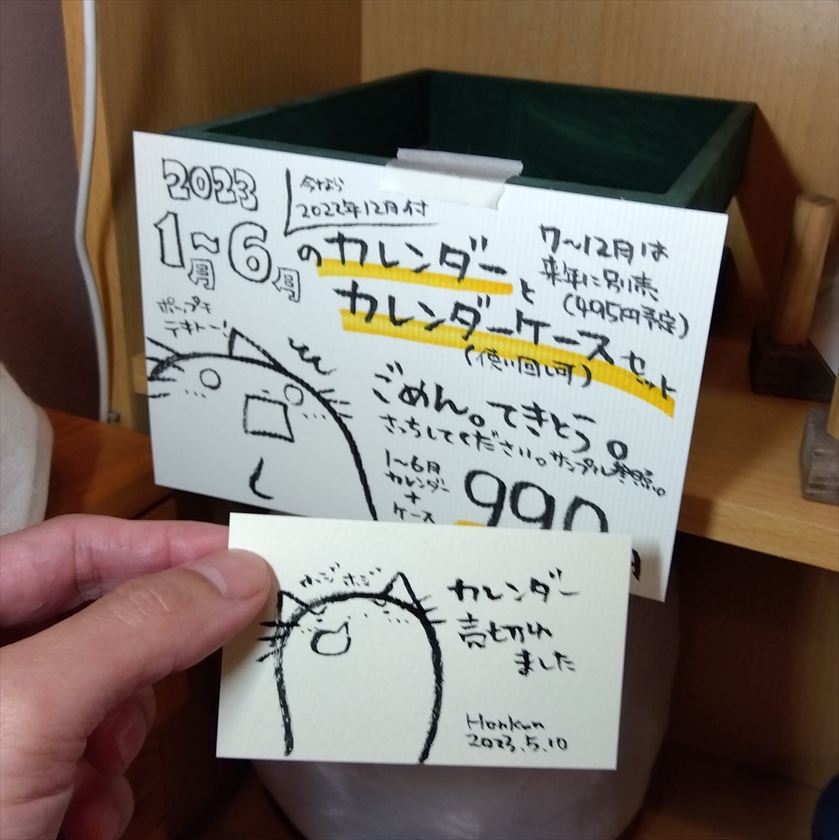 2023
1月～6月
今なら
2022年12月付
のカレンダーと
カレンダーケースセット
(使い回し可)
7～12月は
来年に別売
(495円予定)
ポップも
テキトー!
ごめん。てきとう。
さっちしてください。サンプル参照。
1～6月
カレンダー
+
ケース
990
円
カレンダー
売切れ
ました
Honkun
2023.5.10